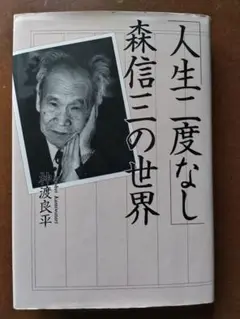 「人生二度なし」
森信三の世界
神渡良平